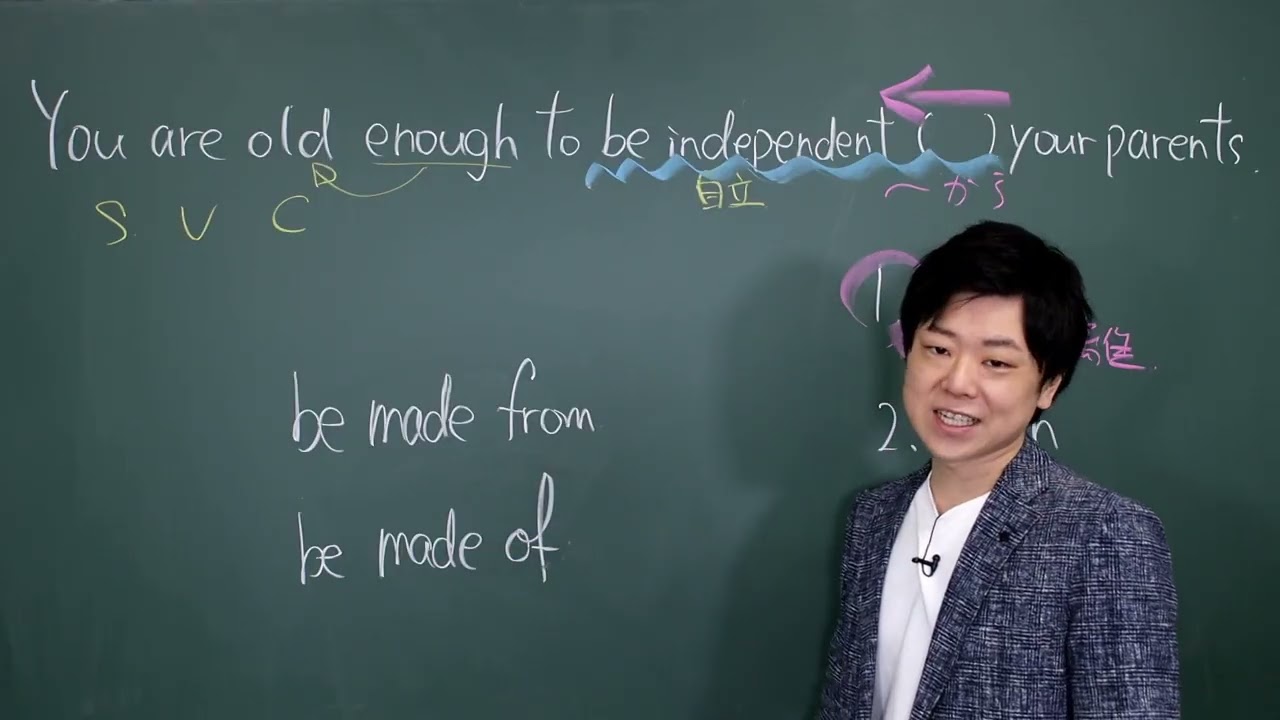 You are old enough to be independent ( ) your parents.
自立 〜から
S V C
1
2. n
be made from
be made of